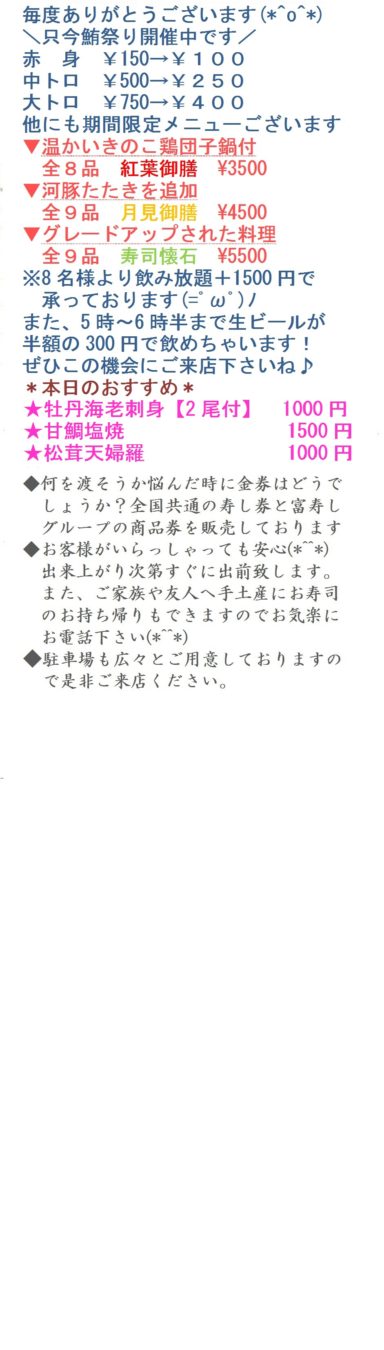 毎度ありがとうございます(*^o^*)
＼只今鮪祭り開催中です／
赤　身　￥150→￥１００
中トロ　￥500→￥２５０
大トロ　￥750→￥４００
他にも期間限定メニューございます
▼温かいきのこ鶏団子鍋付
全８品　紅葉御膳　¥3500
▼河豚たたきを追加
全９品　月見御膳　¥4500
▼グレードアップされた料理
全９品　寿司懐石　¥5500
※8 名様より飲み放題＋1500 円で
承っております(=ﾟωﾟ)ﾉ
また、5 時～6 時半まで生ビールが
半額の 300 円で飲めちゃいます！
ぜひこの機会にご来店下さいね♪
＊本日のおすすめ＊
★牡丹海老刺身【2 尾付】　1000 円
★甘鯛塩焼　1500 円
★松茸天婦羅　1000 円
◆何を渡そうか悩んだ時に金券はどうで
しょうか？全国共通の寿し券と富寿し
グループの商品券を販売しております
◆お客様がいらっしゃっても安心(*^^*)
出来上がり次第すぐに出前致します。
また、ご家族や友人へ手土産にお寿司
のお持ち帰りもできますのでお気楽に
お電話下さい(*^^*)
◆駐車場も広々とご用意しておりますの
で是非ご来店ください。